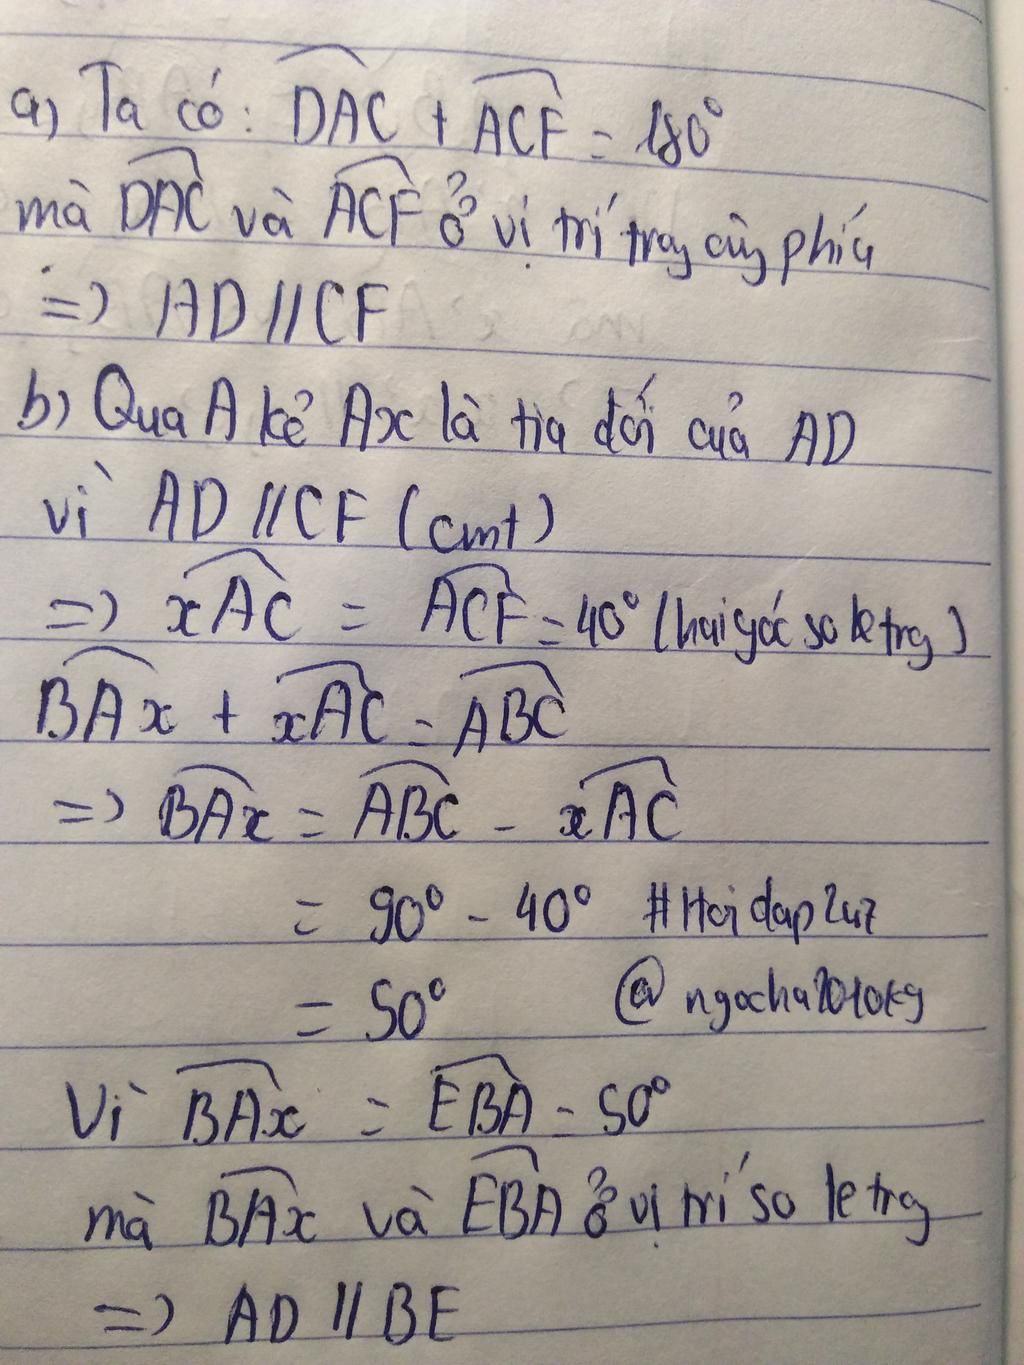 a) Ta có: DAC + ACF = 180°
mà DAC và ACF ở vị trí trog cùg phía
=> AD // CF
b) Qua A kẻ Ax là tia đối của AD
vì AD // CF (cmt)
=> xAC = ACF = 40° (hai góc so le trg)
BAx + xAC = ABC
=> BAx = ABC - xAC
= 90° - 40° #Hoidap247
= 50° @ngocha2010kg
Vì BAx = EBA = 50°
mà BAx và EBA ở vị trí so le trg
=> AD // BE